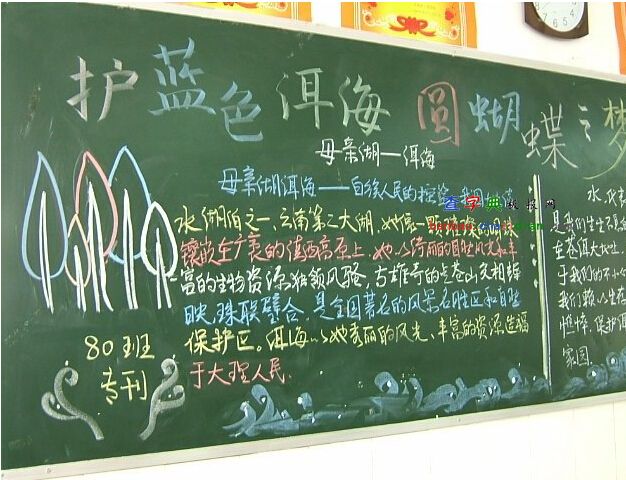 护蓝色洱海 圆蝴蝶之梦
母亲湖——洱海
母亲湖洱海——白族人民的摇篮,我国
水湖泊之一、云南第二大湖,她像一颗
镶嵌在广袤的滇西高原上,她以绮丽的自然风光和丰
富的生物资源独领风骚,与雄奇的点苍山交相辉
映、珠联璧合,是全国著名的风景名胜区和自然
保护区。洱海以她秀丽的风光、丰富的资源造福
于大理人民.
80班
专刊
水,代表
是我们生生不息的
在苍洱大地上
于我们的不小心
我们了解以生态
憔悴,保护洱
家园.
查字典教投网